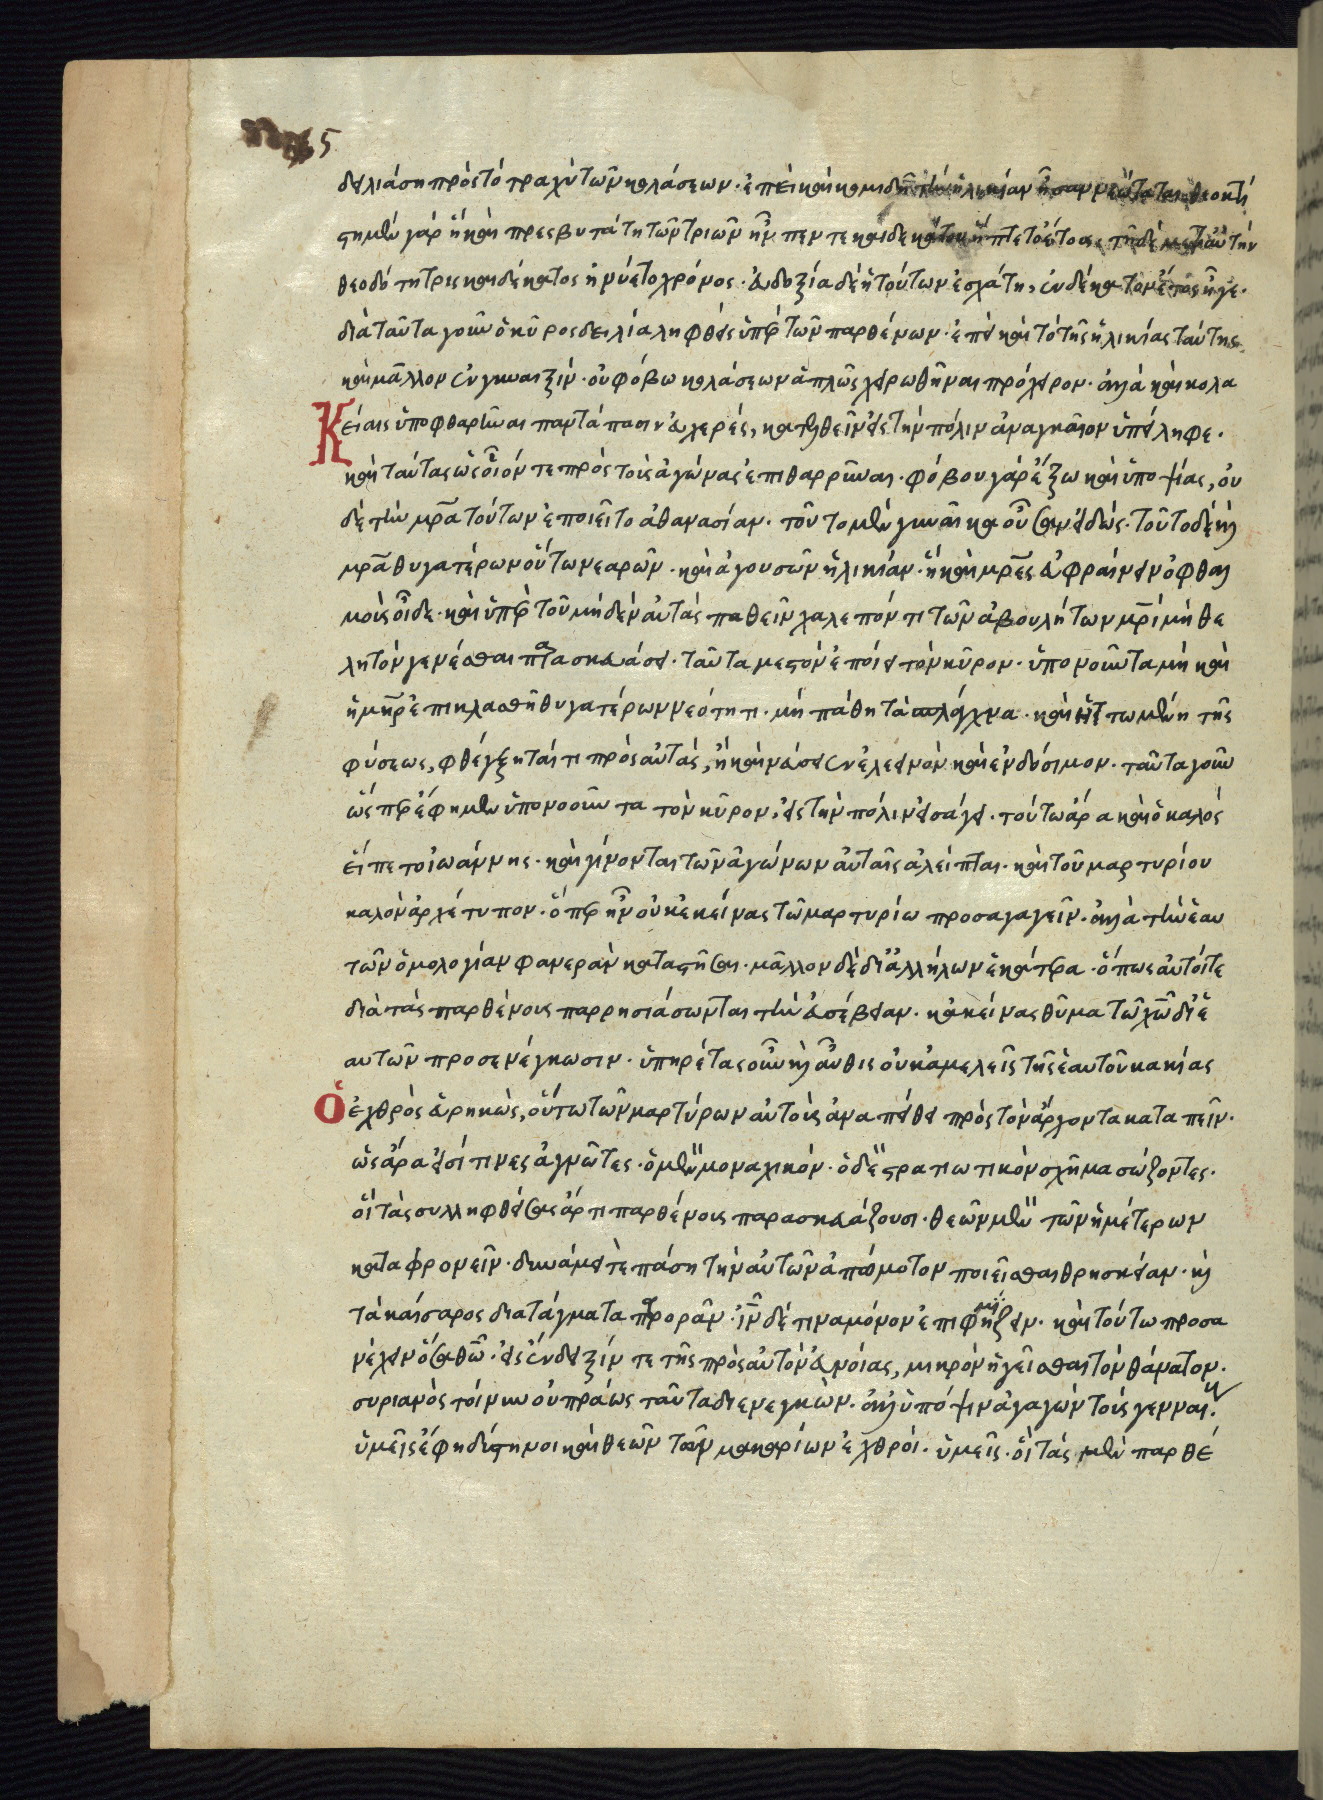 5
δειλιάση πρὸς τὸ τραχὺ τῶν κολάσεων· ἐπεὶ καὶ κομιδῆ τὴν ἡλικίαν ἦσαν νεώταται· θεοκτί
στη μὲν γὰρ ἣ καὶ πρεσβυτάτη τῶν τριῶν ἦν πεντεκαιδέκατον ἥπτετο ἔτος· τῆ δὲ μετ' αὐτὴν
θεοδότη τρισκαιδέκατος ἠνύετο χρόνος· εὐδοξία δὲ ἡ τούτων ἐσχάτη, ἑνδέκατον ἔτος ἦγε·
διὰ ταῦτα γοῦν ὁ κῦρος δειλία ληφθεὶς ὑπὲρ τῶν παρθένων· ἐπεὶ καὶ τὸ τῆς ἡλικίας ταύτης
καὶ μᾶλλον ἐν γυναιξὶν· οὐ φόβω κολάσεων ἁπλῶς χειρωθῆναι πρόχειρον· ἀλλὰ καὶ κολα
κείαις ὑποφθαρῆναι παντάπασιν εὐχερές, κατελθεῖν εἰς τὴν πόλιν ἀναγκαῖον ὑπείληφε·
καὶ ταύτας ὡς οἷόν τε πρὸς τοὺς ἀγῶνας ἐπιθαρρῦναι· φόβου γὰρ ἔξω καὶ ὑποψίας, οὐ
δὲ τὴν μρα τούτων ἐποιεῖτο ἀθανασίαν· τοῦτο μὲν γυναῖκα οὖσαν εἰδὼς· τοῦτο δὲ καὶ
μρα θυγατέρων οὕτω νεαρῶν· καὶ ἀγουσῶν ἡλικίαν· ἣ καὶ μρες εὐφραίνειν ὀφθαλ
μοὺς οἶδε· καὶ ὑπὲρ τοῦ μηδὲν αὐτὰς παθεῖν χαλεπόν τι τῶν ἀβουλήτων μρὶ μὴ θε
λητὸν γενέσθαι παρασκευάσει· ταῦτα μεστὸν ἐποίει τὸν κῦρον· ὑπονοοῦντα μὴ καὶ
ἡ μηρ ἐπικλασθῆ θυγατέρων νεότητι· μὴ πάθη τὰ σπλάγχνα· καὶ ἥττων μένη τῆς
φύσεως, φθέγξηταί τι πρὸς αὐτάς, ἢ καὶ νεύσει ἐνελεεινὸν καὶ ἐνδόσιμον· ταῦτα γοῦν
ὥσπερ ἔφημεν ὑπονοοῦντα τὸν κῦρον, εἰς τὴν πόλιν εἰσάγει· τούτω ἄρα καὶ ὁ καλὸς
εἵπετο ἰωάννης· καὶ γίνονται τῶν ἀγώνων αὐταῖς ἀλείπται· καὶ τοῦ μαρτυρίου
καλὸν ἀρχέτυπον· ὅπερ ἦν οὐκ ἐκείνας τῶ μαρτυρίω προσαγαγεῖν· ἀλλὰ τὴν ἑαυ
τῶν ὁμολογίαν φανερὰν καταστῆσαι· μᾶλλον δὲ δι' ἀλλήλων ἑκάτερα· ὅπως αὐτοί τε
διὰ τὰς παρθένους παρρησιάσωνται τὴν εὐσέβειαν· κἀκείνας θῦμα τῶ χῶ δι' ἑ
αυτῶν προσενέγκωσιν· ὑπηρέτας οὖν καὶ αὖθις οὐκ ἀμελεῖς τῆς ἑαυτοῦ κακίας
ὁ ἐχθρὸς εὑρηκὼς, οὕτω τῶν μαρτύρων αὐτοὺς ἀναπείθει πρὸς τὸν ἄρχοντα κατειπεῖν·
ὡς ἄρα εἰσί τινες ἀγνῶτες· ὁ μὲν μοναχικόν· ὁ δὲ στρατιωτικὸν σχῆμα σώζοντες·
οἳ τὰς συλληφθείσας ἄρτι παρθένους παρασκευάζουσι· θεῶν μὲν τῶν ἡμετέρων
καταφρονεῖν· δυνάμει τὲ πάση τὴν αὐτῶν ἀπώμοτον ποιεῖσθαι θρησκείαν· καὶ
τὰ καίσαρος διατάγματα παρορᾶν· ἰν δέ τινα μόνον ἐπιφημίζειν· καὶ τούτω προσα
νέχειν ὅσα θῶ· εἰς ἔνδειξίν τε τῆς πρὸς αὐτὸν εὐνοίας, μικρὸν ἡγεῖσθαι τὸν θάνατον·
συριανὸς τοίνυν οὐ πράως ταῦτα διενεγκὼν· ἀλλ' ὑπόψιν ἀγαγὼν τοὺς γενναί·
ὑμεῖς ἔφη δύστηνοι καὶ θεῶν τῶν μακαρίων ἐχθροί· ὑμεῖς· οἳ τὰς μὲν παρθέ